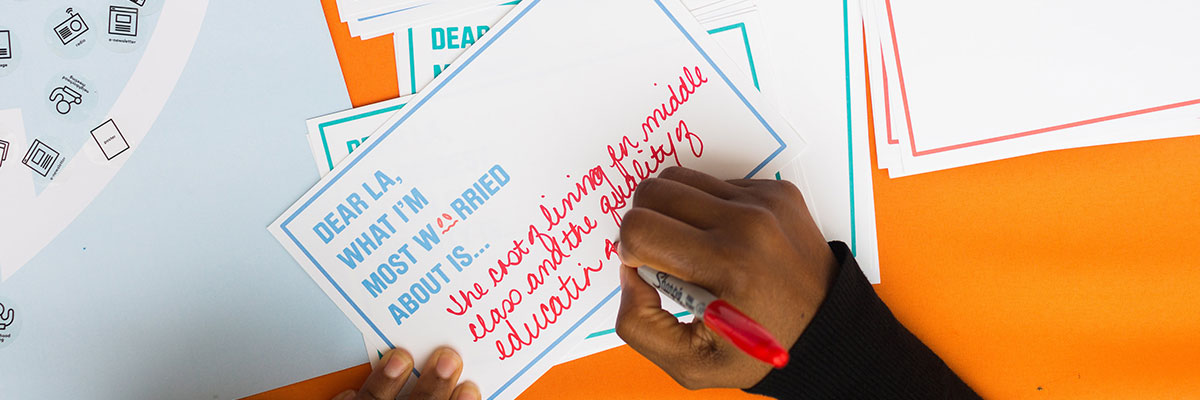 DEAR LA,
WHAT I'M
MOST WORRIED
ABOUT IS...
The cost of living for middle
class and the quality of
education
DEAR
DEAR
radio
e-newsletter
newsletter